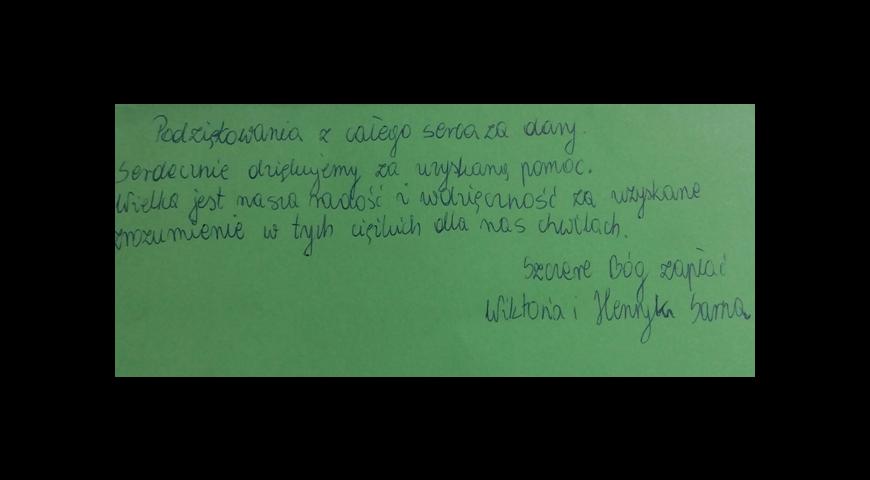 Podziękowania z całego serca za dary.
Serdecznie dziękujemy za uzyskaną pomoc.
Wielka jest nasza radość i wdzięczność za uzyskane
zrozumienie w tych ciężkich dla nas chwilach.
Szczere Bóg zapłać
Wiktoria i Henryk Sarna